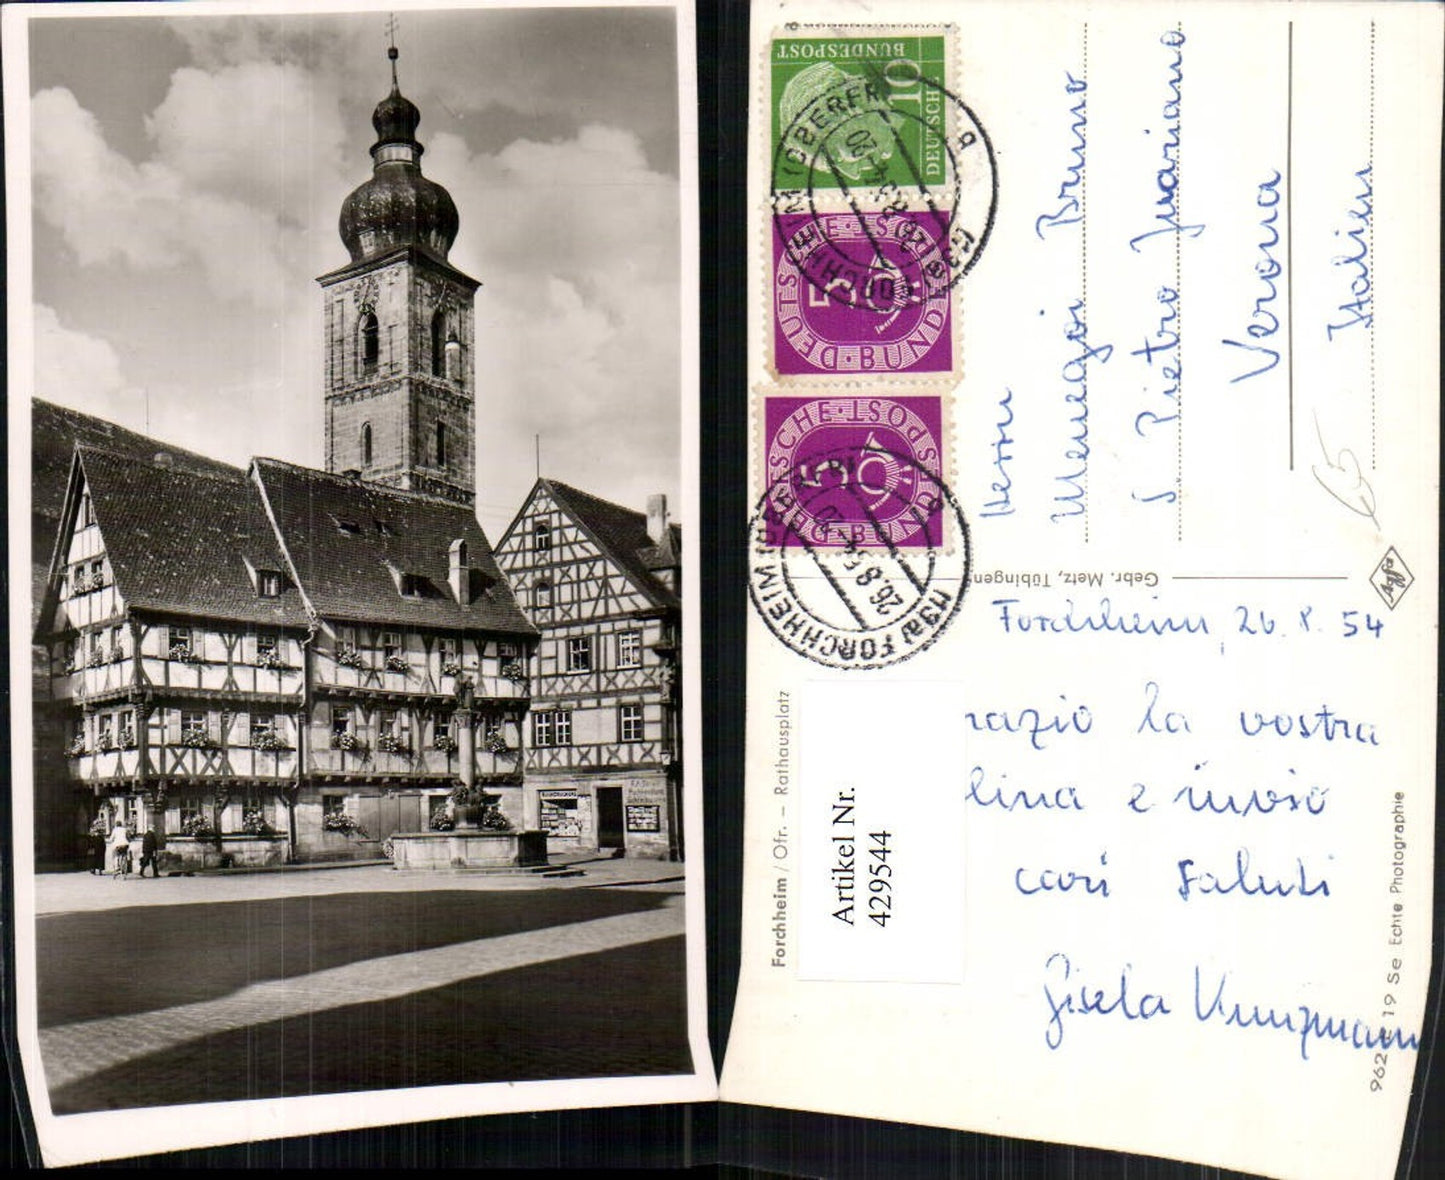 DEUTSCHE
BUNDESPOST
10
DEUTSCHE BUNDESPOST
5
DEUTSCHE BUNDESPOST
5
(13a) FORCHHEIM (OBERFR)
26.8.54
Herrn
Menegoi Bruno
S. Pietro Juariano
Verona
Italien
65
Gebr. Metz, Tübingen
Agfa
Forchheim, 26. 8. 54
razio la vostra
lina e invio
cari saluti
Gisela Kunzmann
Forchheim / Ofr. – Rathausplatz
Artikel Nr.
429544
19 Se Echte Photographie